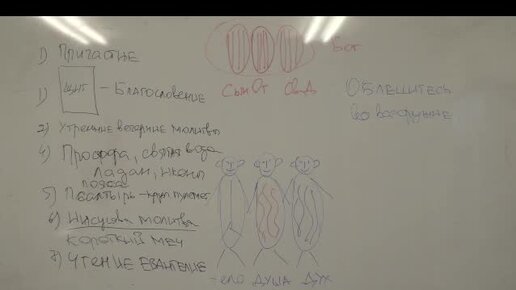 1) Причастие
1) щит - Благословение
2) Утренние вечерние молитвы
4) Просфора, святая вода
Ладан, иконы
пояса
5) Псалтырь - крупн пулемет
6) Иисусова молитва
короткий меч
7) Чтение Евангелие
Бог
Сын От Св.Д
Облекитесь
во всеоружие
тело душа дух